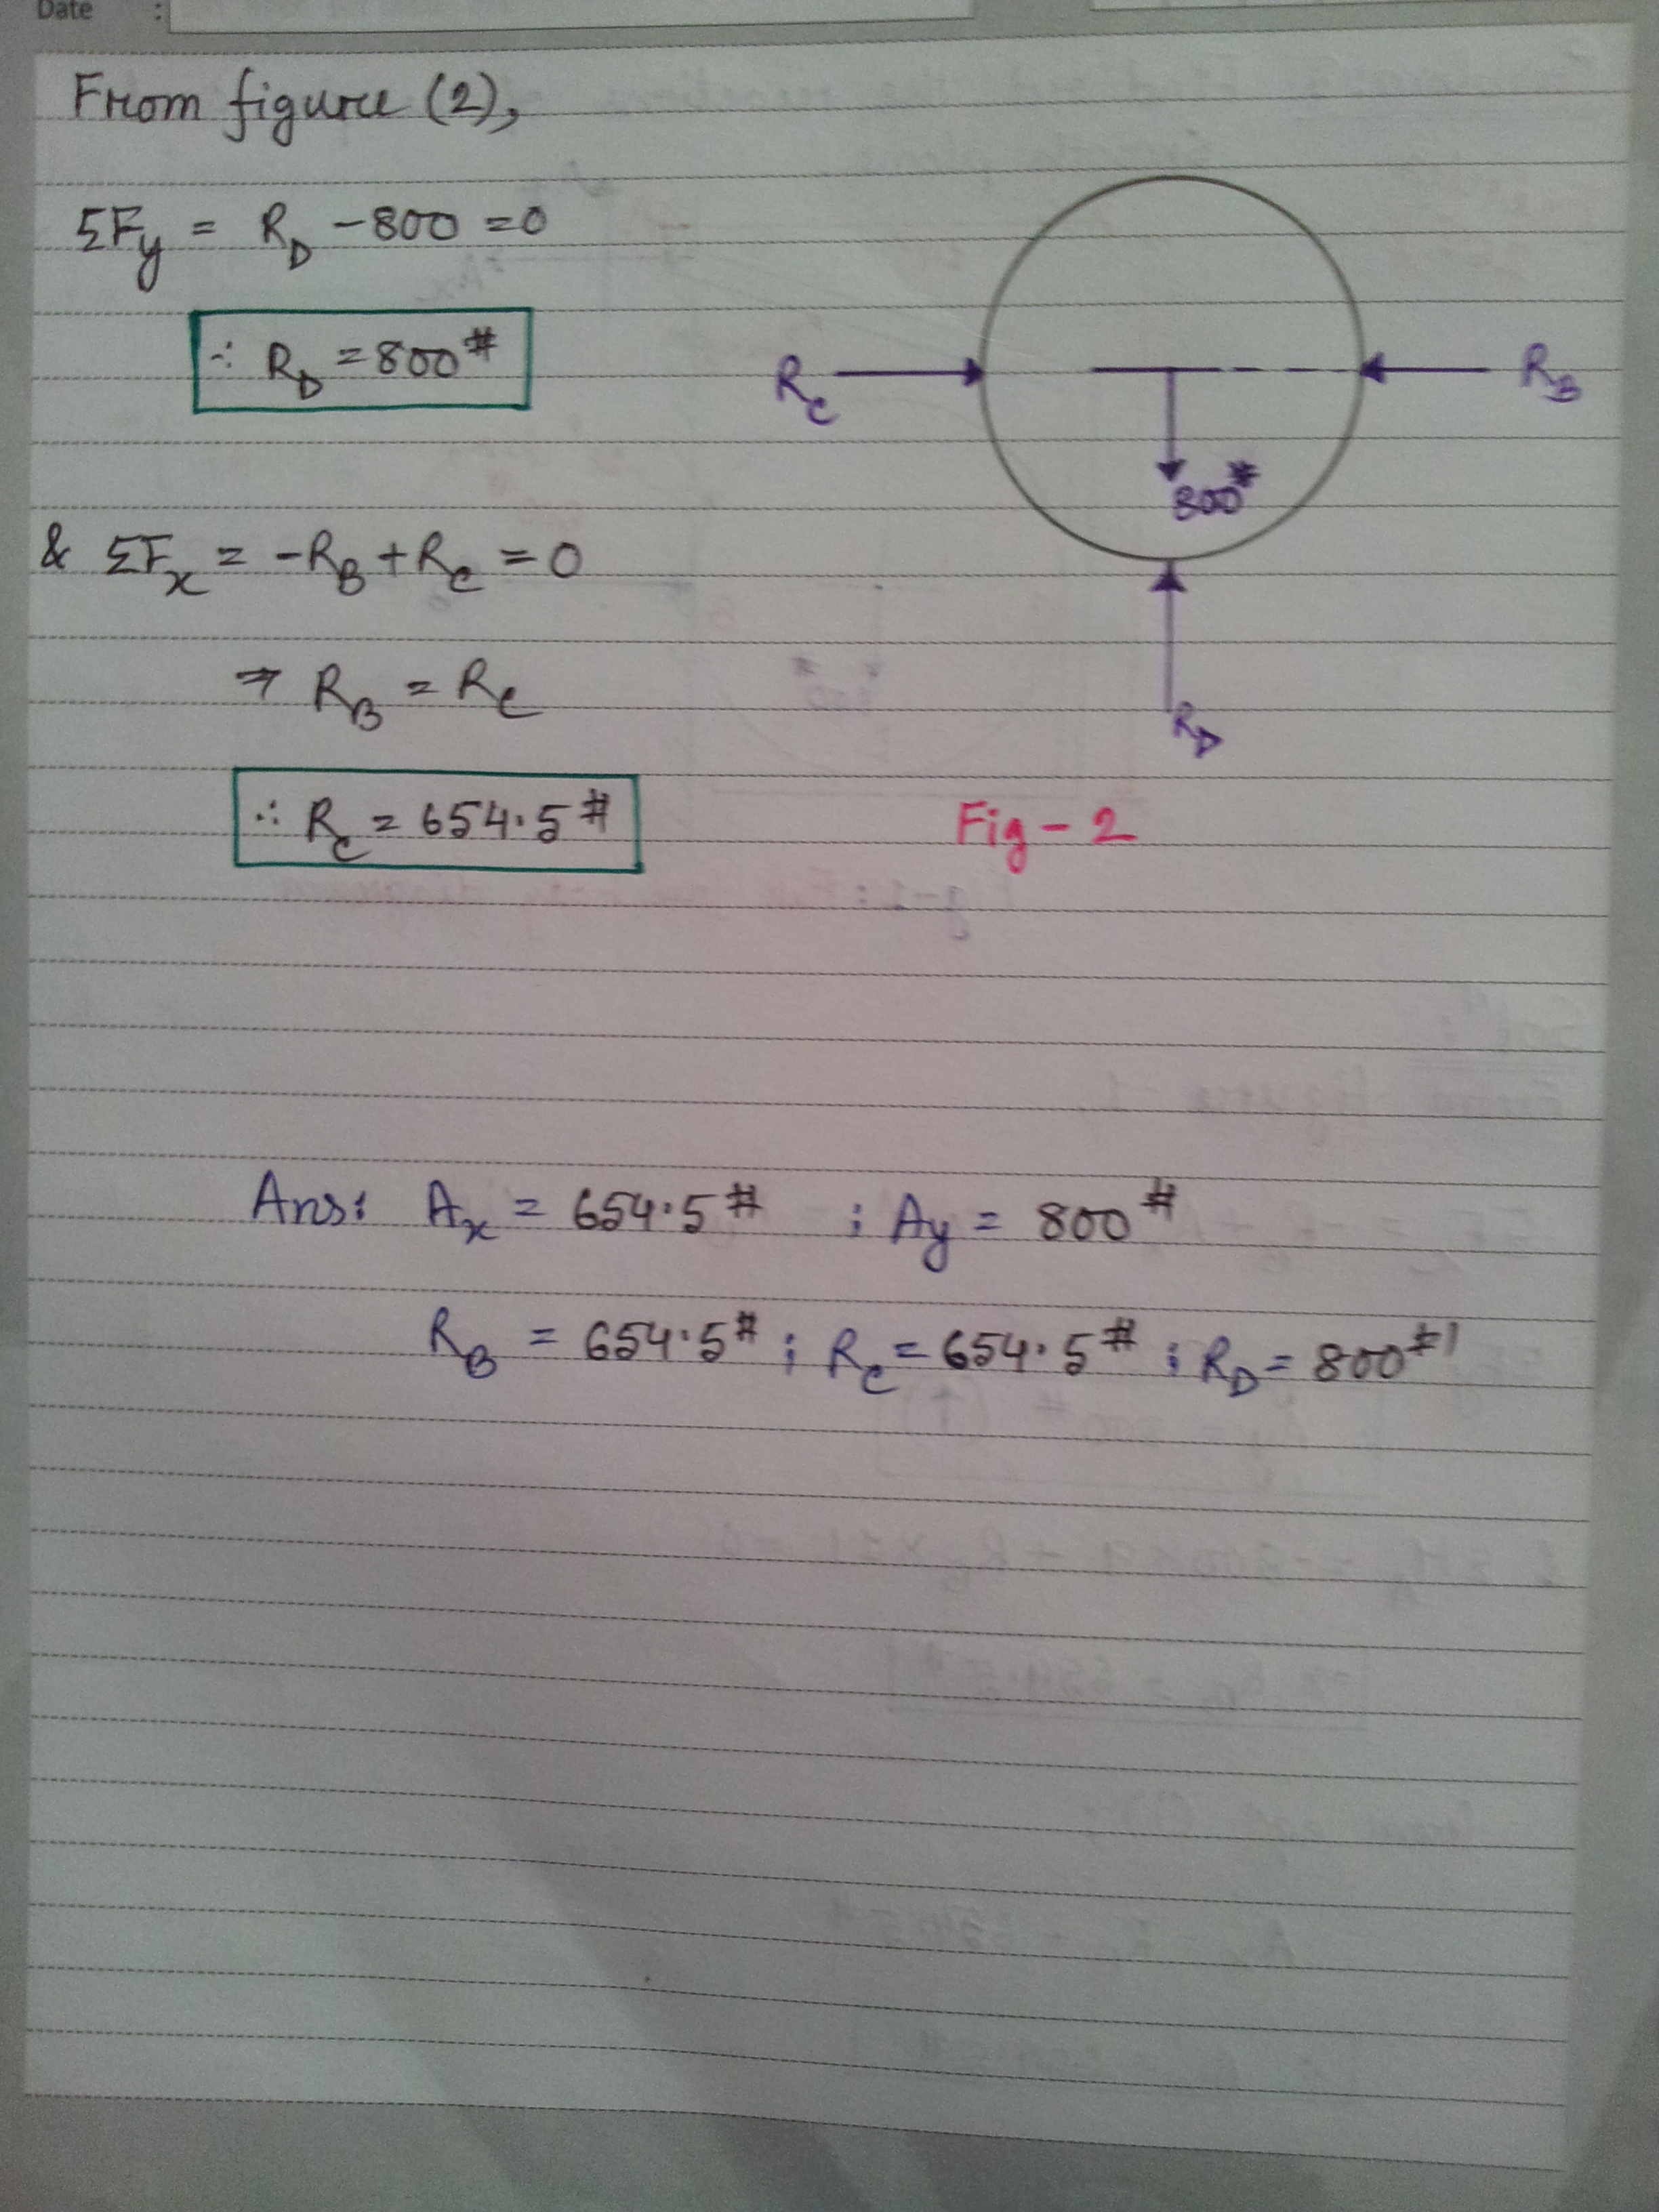 Date :
From figure (2),
ΣFy = RD - 800 = 0
∴ RD = 800#
RC
RB
800#
& ΣFx = -RB + RC = 0
⇒ RB = RC
RD
∴ RC = 654.5#
Fig - 2
Ans: Ax = 654.5# ; Ay = 800#
RB = 654.5# ; RC = 654.5# ; RD = 800#